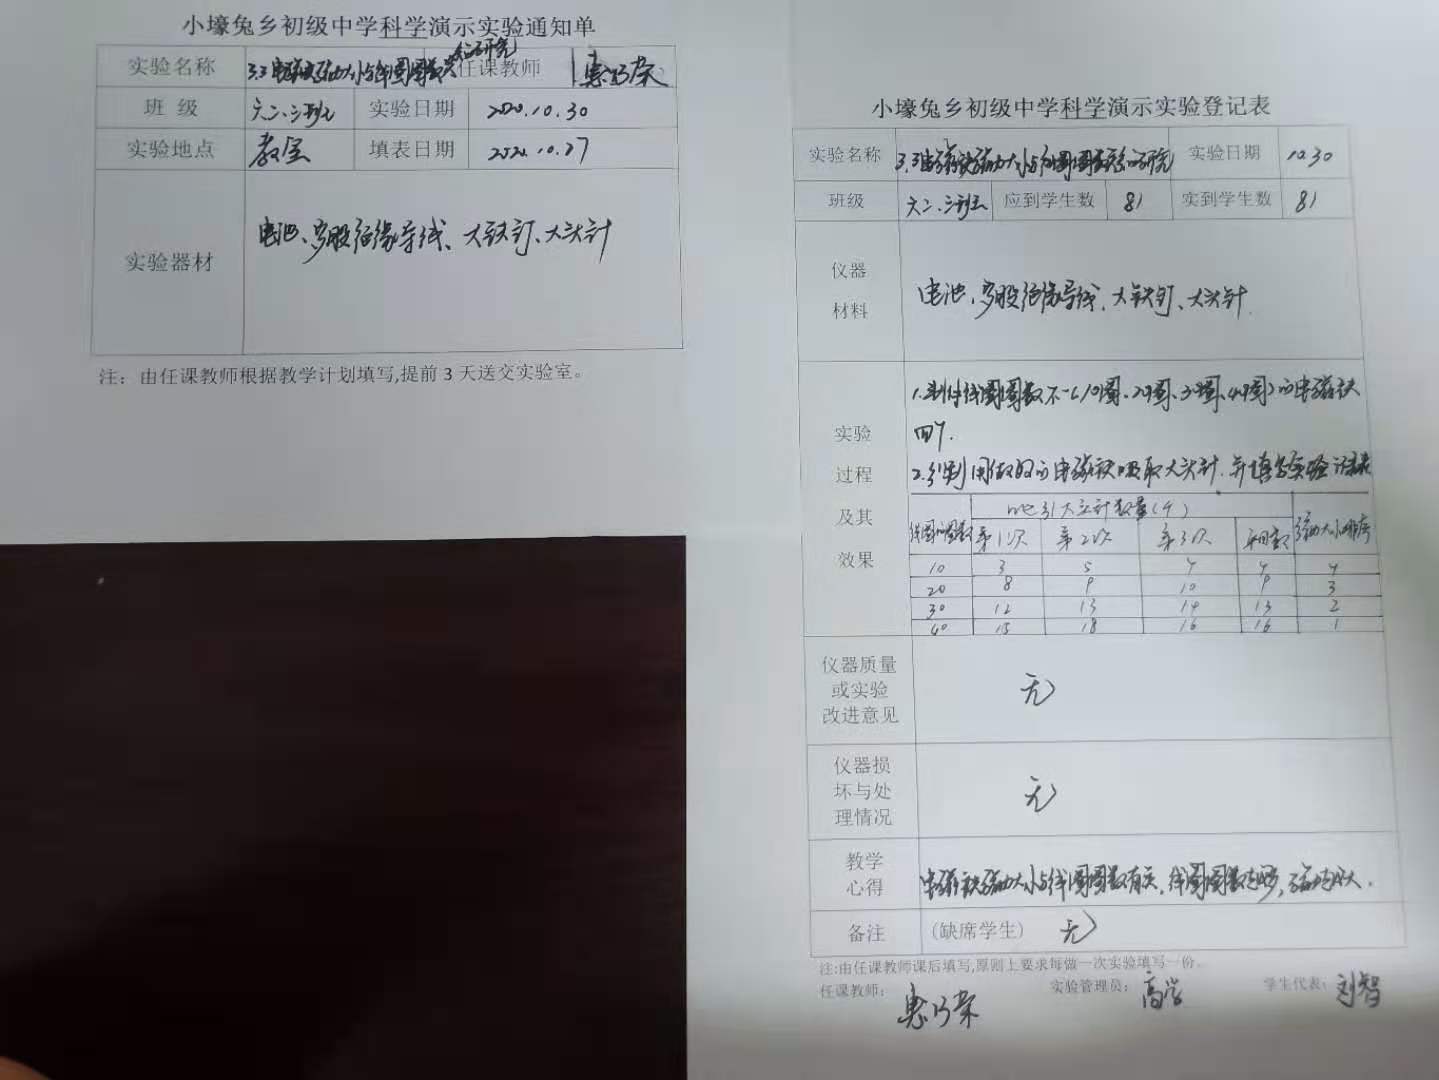 小壕兔乡初级中学科学演示实验通知单
实验名称 3.3电磁铁磁力大小与线圈圈数关系的研究 任课教师 惠巧荣
班 级 六二、三班 实验日期 2020.10.30
实验地点 教室 填表日期 2020.10.27
实验器材 电池、多股绝缘导线、大铁钉、大头针
注：由任课教师根据教学计划填写,提前3天送交实验室。
小壕兔乡初级中学科学演示实验登记表
实验名称 3.3电磁铁磁力大小与线圈圈数关系的研究 实验日期 10.30
班级 六二、三班 应到学生数 81 实到学生数 81
仪器
材料
电池、多股绝缘导线、大铁钉、大头针.
实验
过程
及其
效果
1.制作线圈圈数不一(10圈、20圈、30圈、40圈)的电磁铁
四个.
2.分别用做好的电磁铁吸取大头针.并填写实验记录表
吸引大头针数量(个)
线圈的圈数 第1次 第2次 第3次 平均数 磁力大小排序
10 3 5 4 4 4
20 8 9 10 9 3
30 12 13 14 13 2
40 15 18 16 16 1
仪器质量
或实验
改进意见
无
仪器损
坏与处
理情况
无
教学
心得
电磁铁磁力大小与线圈圈数有关,线圈圈数越多,磁力越大.
备注 (缺席学生) 无
注:由任课教师课后填写,原则上要求每做一次实验填写一份。
任课教师: 惠巧荣 实验管理员: 高学 学生代表: 刘智